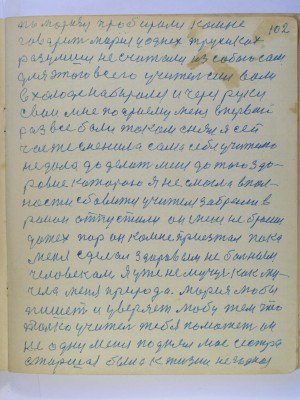 102
мы моразу пробирали комне
говарит мария у одних трусиках
разумши не считали из собою сам
для этого всего учител сил вам
в холоде набирали и через руси
свои мне подному меня впервой
раз все были таком
часте снексила сама себе учителю
недала доделат меня до того здо
ровие которого я не смогла впол
ности обавить учителя забрали в
район отпустили он меня не бросил
до тех пор он комне приезжал пока
меня сделал здаровым не больным
человекам я уже не мучус как му
чела меня природа. мария любы
пишет и уверяет любу тем что
только учител тебя поможет он
не одну меня поднял мое сестра
старшая была к жизни негодная